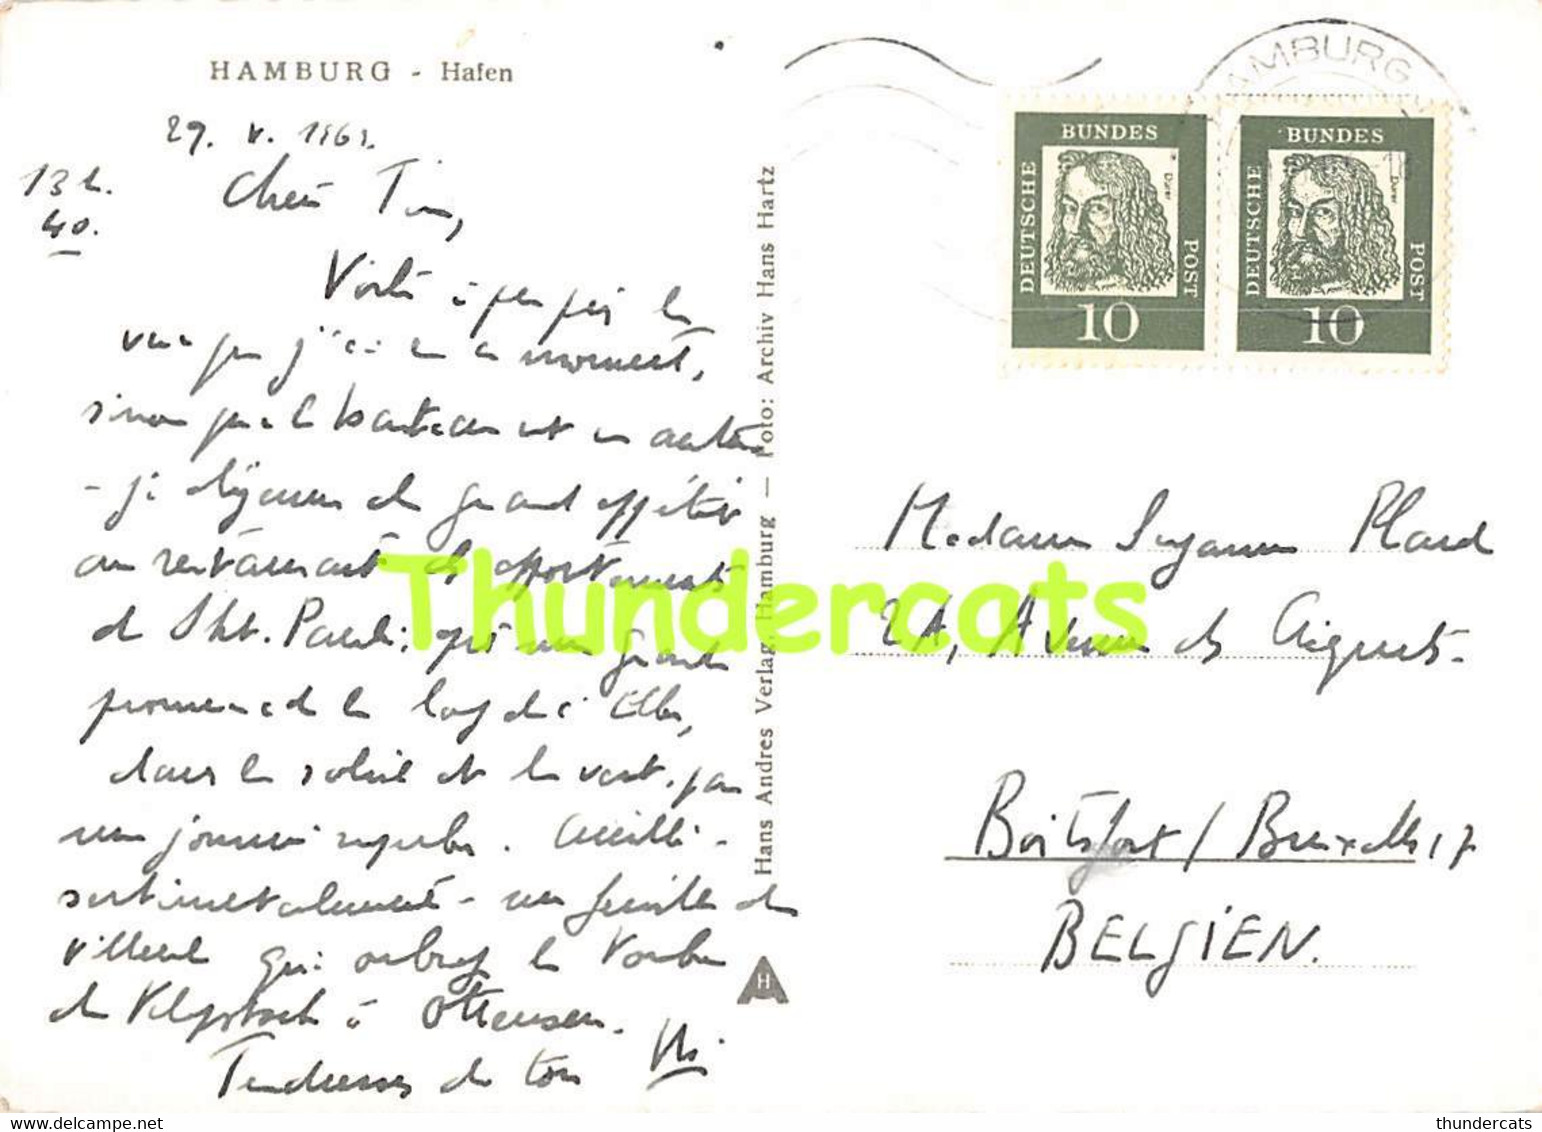 HAMBURG - Hafen
29. V. 1963.
13 h.
40.
Chère Tim,
Voilà à peu près la
vue que j'ai en ce moment,
sinon que le bateau est un autre
- je déjeune de grand appétit
au restaurant de
de Skt. Pauli; après une grande
promenade le long de l'Elbe,
dans le soleil et le vent, par
une journée superbe. Cueilli -
sentimentalement - une feuille de
tilleul qui ombrage la Tombe
de Klopstock à Ottensen.
Tendresses de ton
Hans Andres Verlag, Hamburg — Foto: Archiv Hans Hartz
H
HAMBURG
BUNDES
DEUTSCHE
POST
Dürer
10
BUNDES
DEUTSCHE
POST
Dürer
10
Madame Suzanne Plard
2A, Avenue des Criquets.
Boitsfort / Bruxelles 17
BELGIEN.
Thundercats
www.thundercats.com